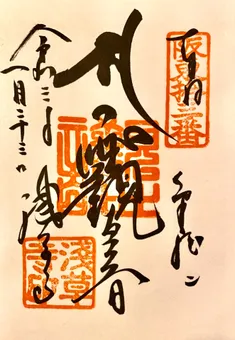 阪東拾三番
奉拝
金龍山
聖觀世音
淺草寺
令和三年
一月二十三日